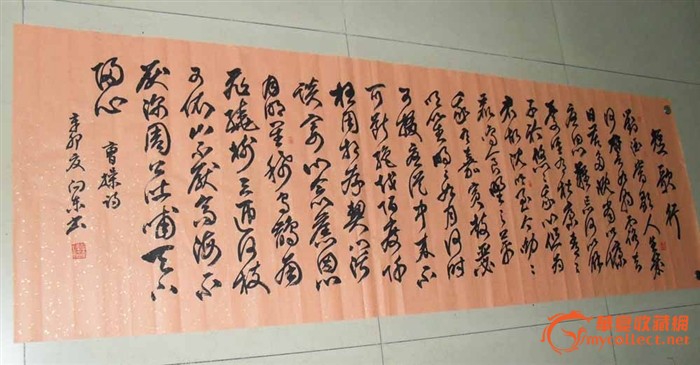 短歌行
對酒當歌人生幾
何譬如朝露去
日苦多慨當以慷
憂思難忘何以解
憂唯有杜康青青
子衿悠悠我心但為
君故沈吟至今呦呦
鹿鳴食野之苹
我有嘉賓鼓瑟
吹笙明明如月何時
可掇憂從中來不
可斷絕越陌度阡
枉用相存契闊
談讌心念舊恩
月明星稀烏鵲南
飛繞樹三匝何枝
可依山不厭高海不
厭深周公吐哺天下
歸心
曹操诗
辛卯夏向东书
華夏收藏網
mycollect.net